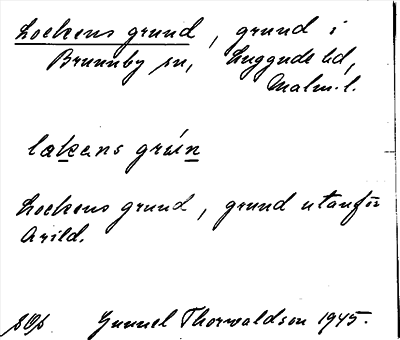 Lockens grund, grund i
Brunnby sn, Luggude hd,
Malm. l.
lakens grún
Lockens grund, grund utanför
Arild.
Gunnel Thorwaldson 1945.